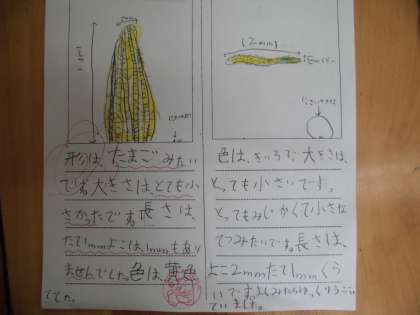 形は、たまごみたい
です。大きさは、とても小
さかったです。長さは、
たて1mmよこは、1mmもあり
ませんでした。色は、黄色
でした。
(2mm)
色は、きいろで、大きさは、
とっても小さいです。
とってもみじかくて小さな
てつみたいです。長さは、
よこ2mmたて1mmくら
いです。
ていました。